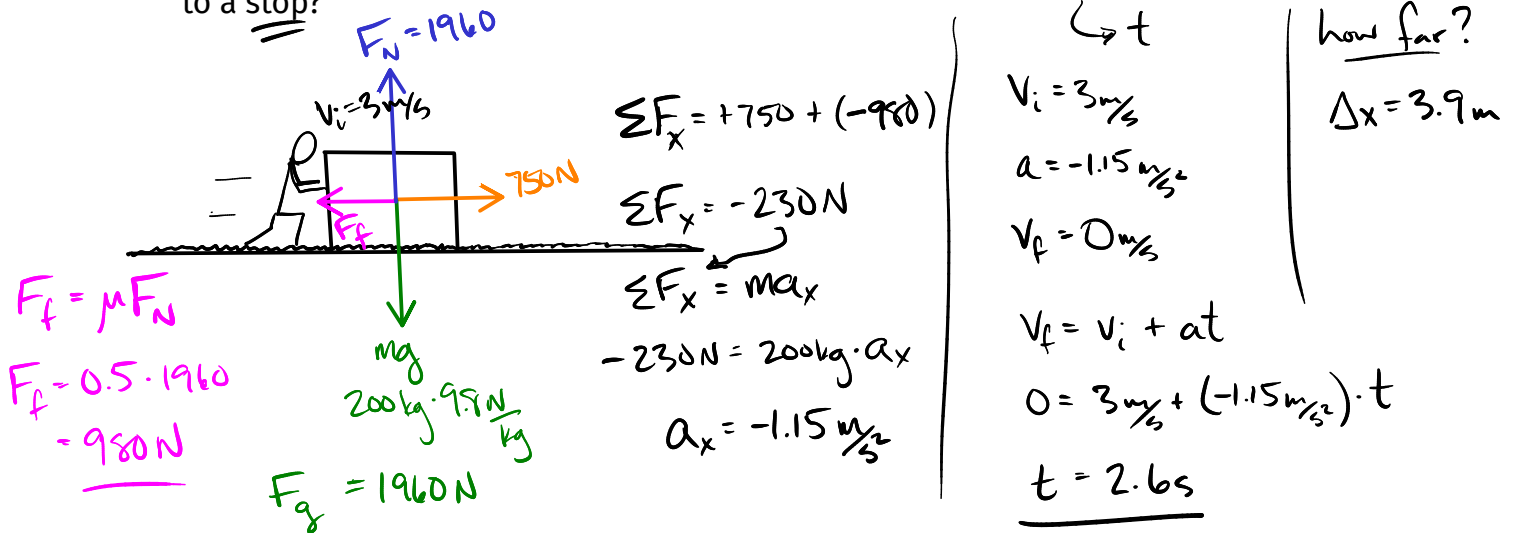 to a stop?
F_N = 1960
v_i = 3 m/s
750N
F_f
F_f = μF_N
F_f = 0.5 · 1960
= 980N
mg
200kg · 9.8 N/kg
F_g = 1960N
ΣF_x = +750 + (-980)
ΣF_x = -230N
ΣF_x = ma_x
-230N = 200kg · a_x
a_x = -1.15 m/s²
t
v_i = 3 m/s
a = -1.15 m/s²
v_f = 0 m/s
v_f = v_i + at
0 = 3 m/s + (-1.15 m/s²) · t
t = 2.6s
how far?
Δx = 3.9m